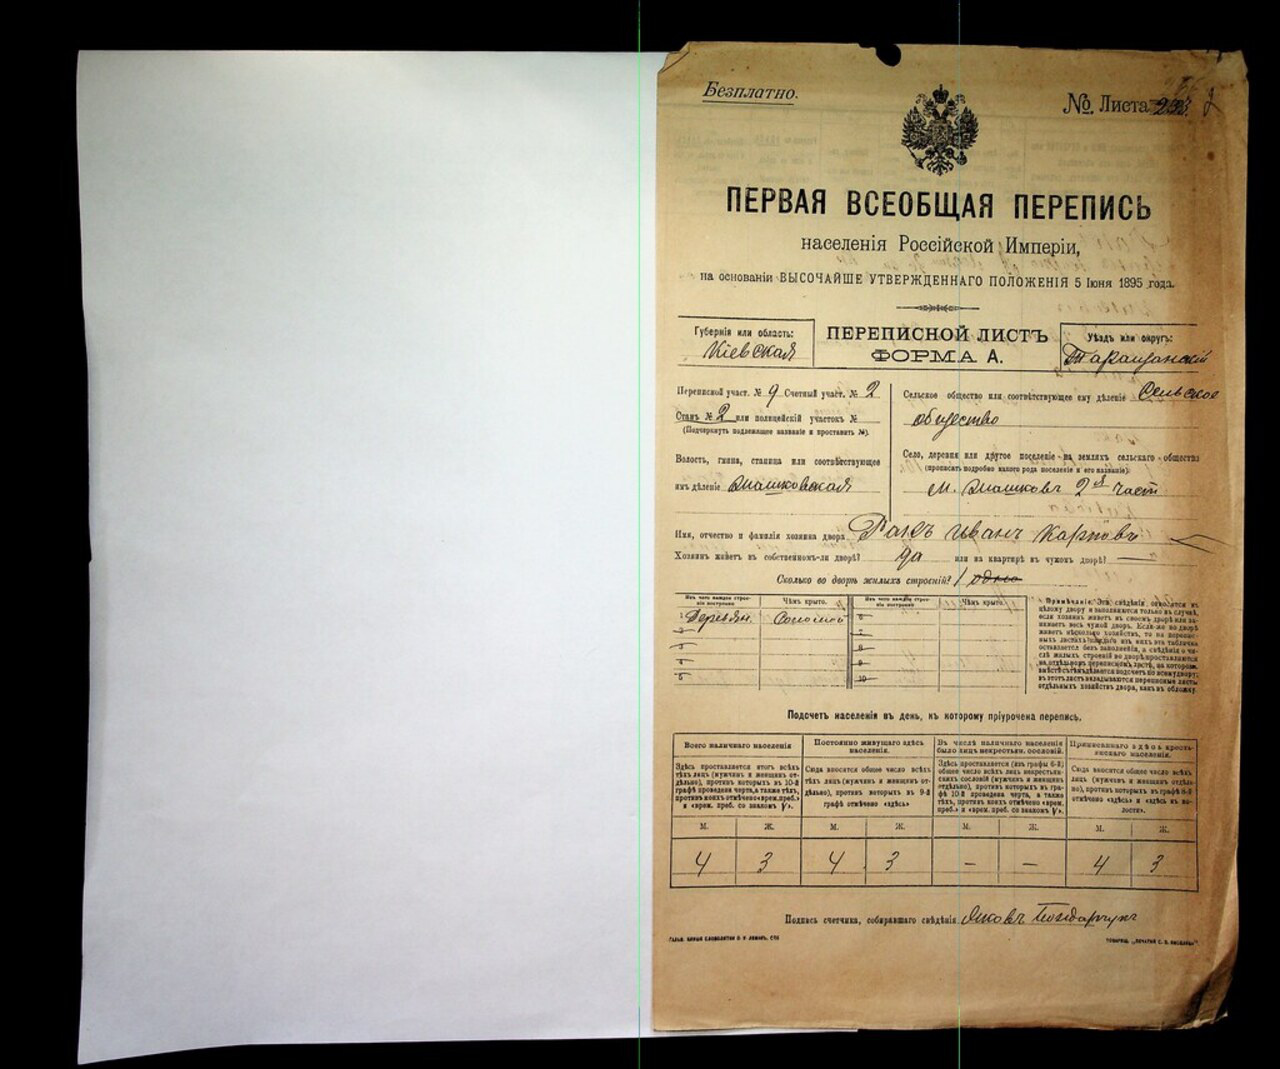 Безплатно.
№ Листа
ПЕРВАЯ ВСЕОБЩАЯ ПЕРЕПИСЬ
населенія Россійской Имперіи,
на основаніи ВЫСОЧАЙШЕ УТВЕРЖДЕННАГО ПОЛОЖЕНІЯ 5 Іюня 1895 года.
Губернія или область:
Кіевская
ПЕРЕПИСНОЙ ЛИСТЪ
ФОРМА А.
Уѣздъ или округъ:
Таращанскій
Переписной участ. № 9 Счетный участ. № 2
Станъ № 2 или полицейскій участокъ №
(Подчеркнуть подлежащее названіе и проставить №).
Волость, гмина, станица или соотвѣтствующее
имъ дѣленіе
Сельское общество или соотвѣтствующее ему дѣленіе Сельское
общество
Село, деревня или другое поселеніе на земляхъ сельскаго общества
(прописать подробно какого рода поселеніе и его названіе):
м. 2я част
Имя, отчество и фамилія хозяина двора Иванъ Карповъ
Хозяинъ живетъ въ собственномъ-ли дворѣ? да или на квартирѣ въ чужомъ дворѣ? —
Сколько во дворѣ жилыхъ строеній? 1 одно
Изъ чего каждое строеніе построено
Чѣмъ крыто.
Изъ чего каждое строеніе построено
Чѣмъ крыто.
1 Деревян. Соломой 6
2 7
3 8
4 9
5 10
Примѣчаніе. Эти свѣдѣнія относятся къ
цѣлому двору и заполняются только въ случаѣ,
если хозяинъ живетъ въ своемъ дворѣ или занимаетъ
весь чужой дворъ. Если-же во дворѣ
живетъ нѣсколько хозяйствъ, то на переписныхъ
листахъ каждаго изъ нихъ эта табличка
оставляется безъ заполненія, а свѣдѣнія о числѣ
жилыхъ строеній во дворѣ проставляются
на отдѣльномъ переписномъ листѣ, на которомъ
вмѣстѣ съ тѣмъ дѣлается подсчетъ по всему двору;
въ этотъ листъ вкладываются переписные листы
отдѣльныхъ хозяйствъ двора, какъ въ обложку.
Подсчетъ населенія въ день, къ которому пріурочена перепись.
Всего наличнаго населенія
Постоянно живущаго здѣсь населенія.
Въ числѣ наличнаго населенія было лицъ некрестьян. сословій.
Приписаннаго здѣсь крестьянскаго населенія.
Здѣсь проставляется итогъ всѣхъ
тѣхъ лицъ (мужчинъ и женщинъ отдѣльно),
противъ которыхъ въ 10-й
графѣ проведена черта, а также тѣхъ,
противъ коихъ отмѣчено «врем. преб.»
и «врем. преб. со знакомъ V».
Сюда вносится общее число всѣхъ
тѣхъ лицъ (мужчинъ и женщинъ отдѣльно),
противъ которыхъ въ 9-й
графѣ отмѣчено «здѣсь»
Здѣсь проставляется (изъ графы 6-й)
общее число всѣхъ лицъ некрестьянскихъ
сословій (мужчинъ и женщинъ
отдѣльно), противъ которыхъ въ графѣ
10-й проведена черта, а также
тѣхъ, противъ коихъ отмѣчено «врем.
преб.» и «врем. преб. со знакомъ V».
Сюда вносится общее число всѣхъ
лицъ (мужчинъ и женщинъ отдѣльно),
противъ которыхъ въ графѣ 8-й
отмѣчено «здѣсь» и «здѣсь въ волости».
М. Ж. М. Ж. М. Ж. М. Ж.
4 3 4 3 – – 4 3
Подпись счетчика, собиравшаго свѣдѣнія Яковъ Бондарчукъ